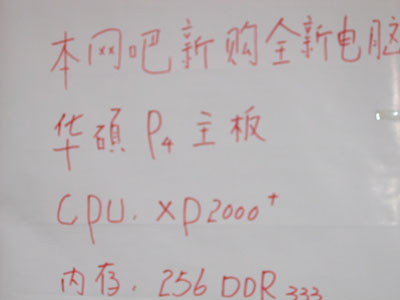 本网吧新购全新电脑
华碩 P4 主板
CPU. XP2000+
内存. 256 DDR 333